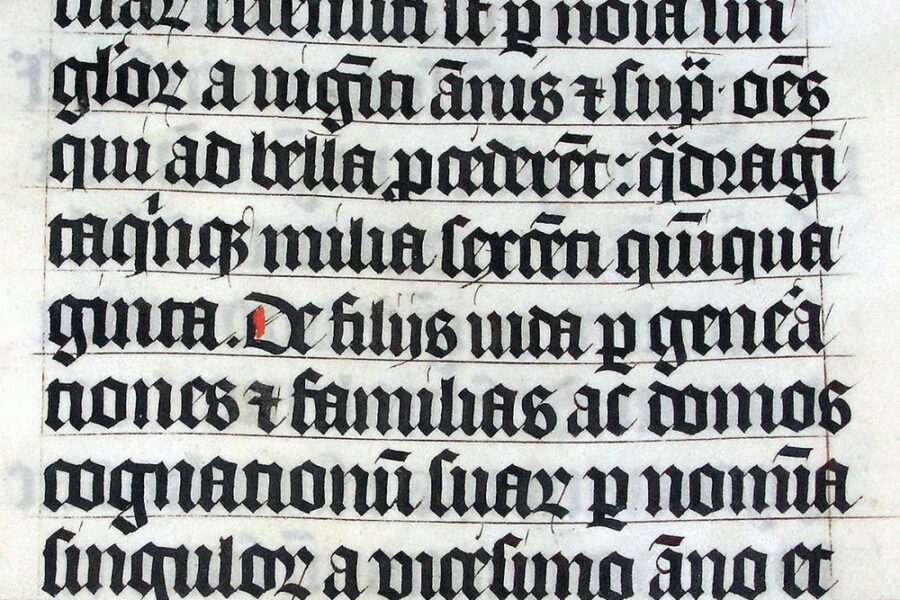 ꝛecensiti st ꝑ noīa sin
gl̄oꝝ a uigīti ān̄is ⁊ sup̄ oēs
qui ad bella ꝓcederēt : qͣdragī
taqͥnqꝫ milia sexcēti quīqua
ginta. De filijs iuda ꝑ gen̄ea
tiones ⁊ familias ac domos
cognationū suaꝝ ꝑ nomīa
singuloꝝ a vicesimo āno et